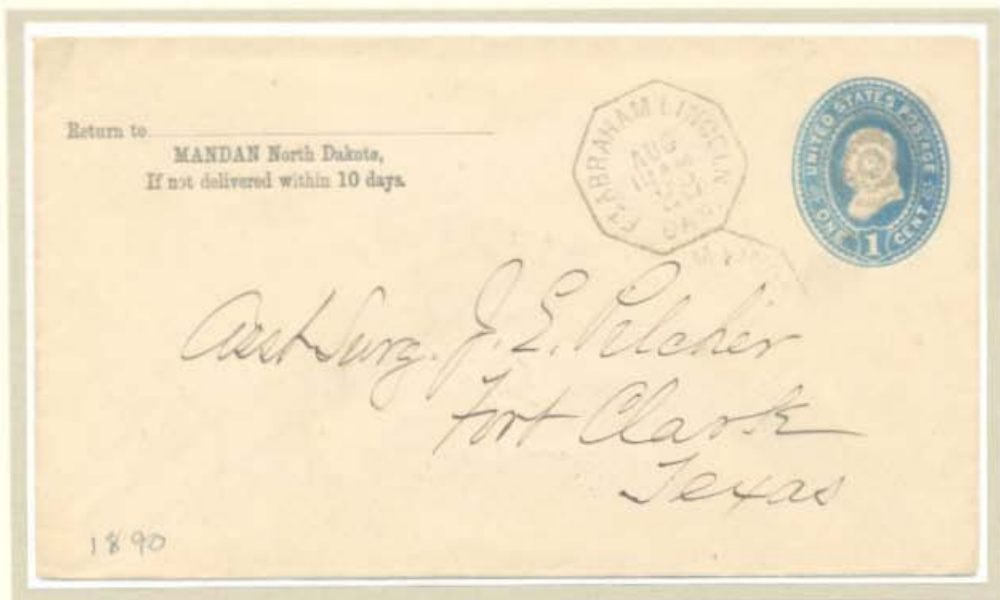 Return to
MANDAN North Dakota,
If not delivered within 10 days.
FT ABRAHAM LINCOLN
AUG
DAK.
UNITED STATES POSTAGE
ONE 1 CENT
Asst Surg. J. E. Pilcher
Fort Clark
Texas
1890